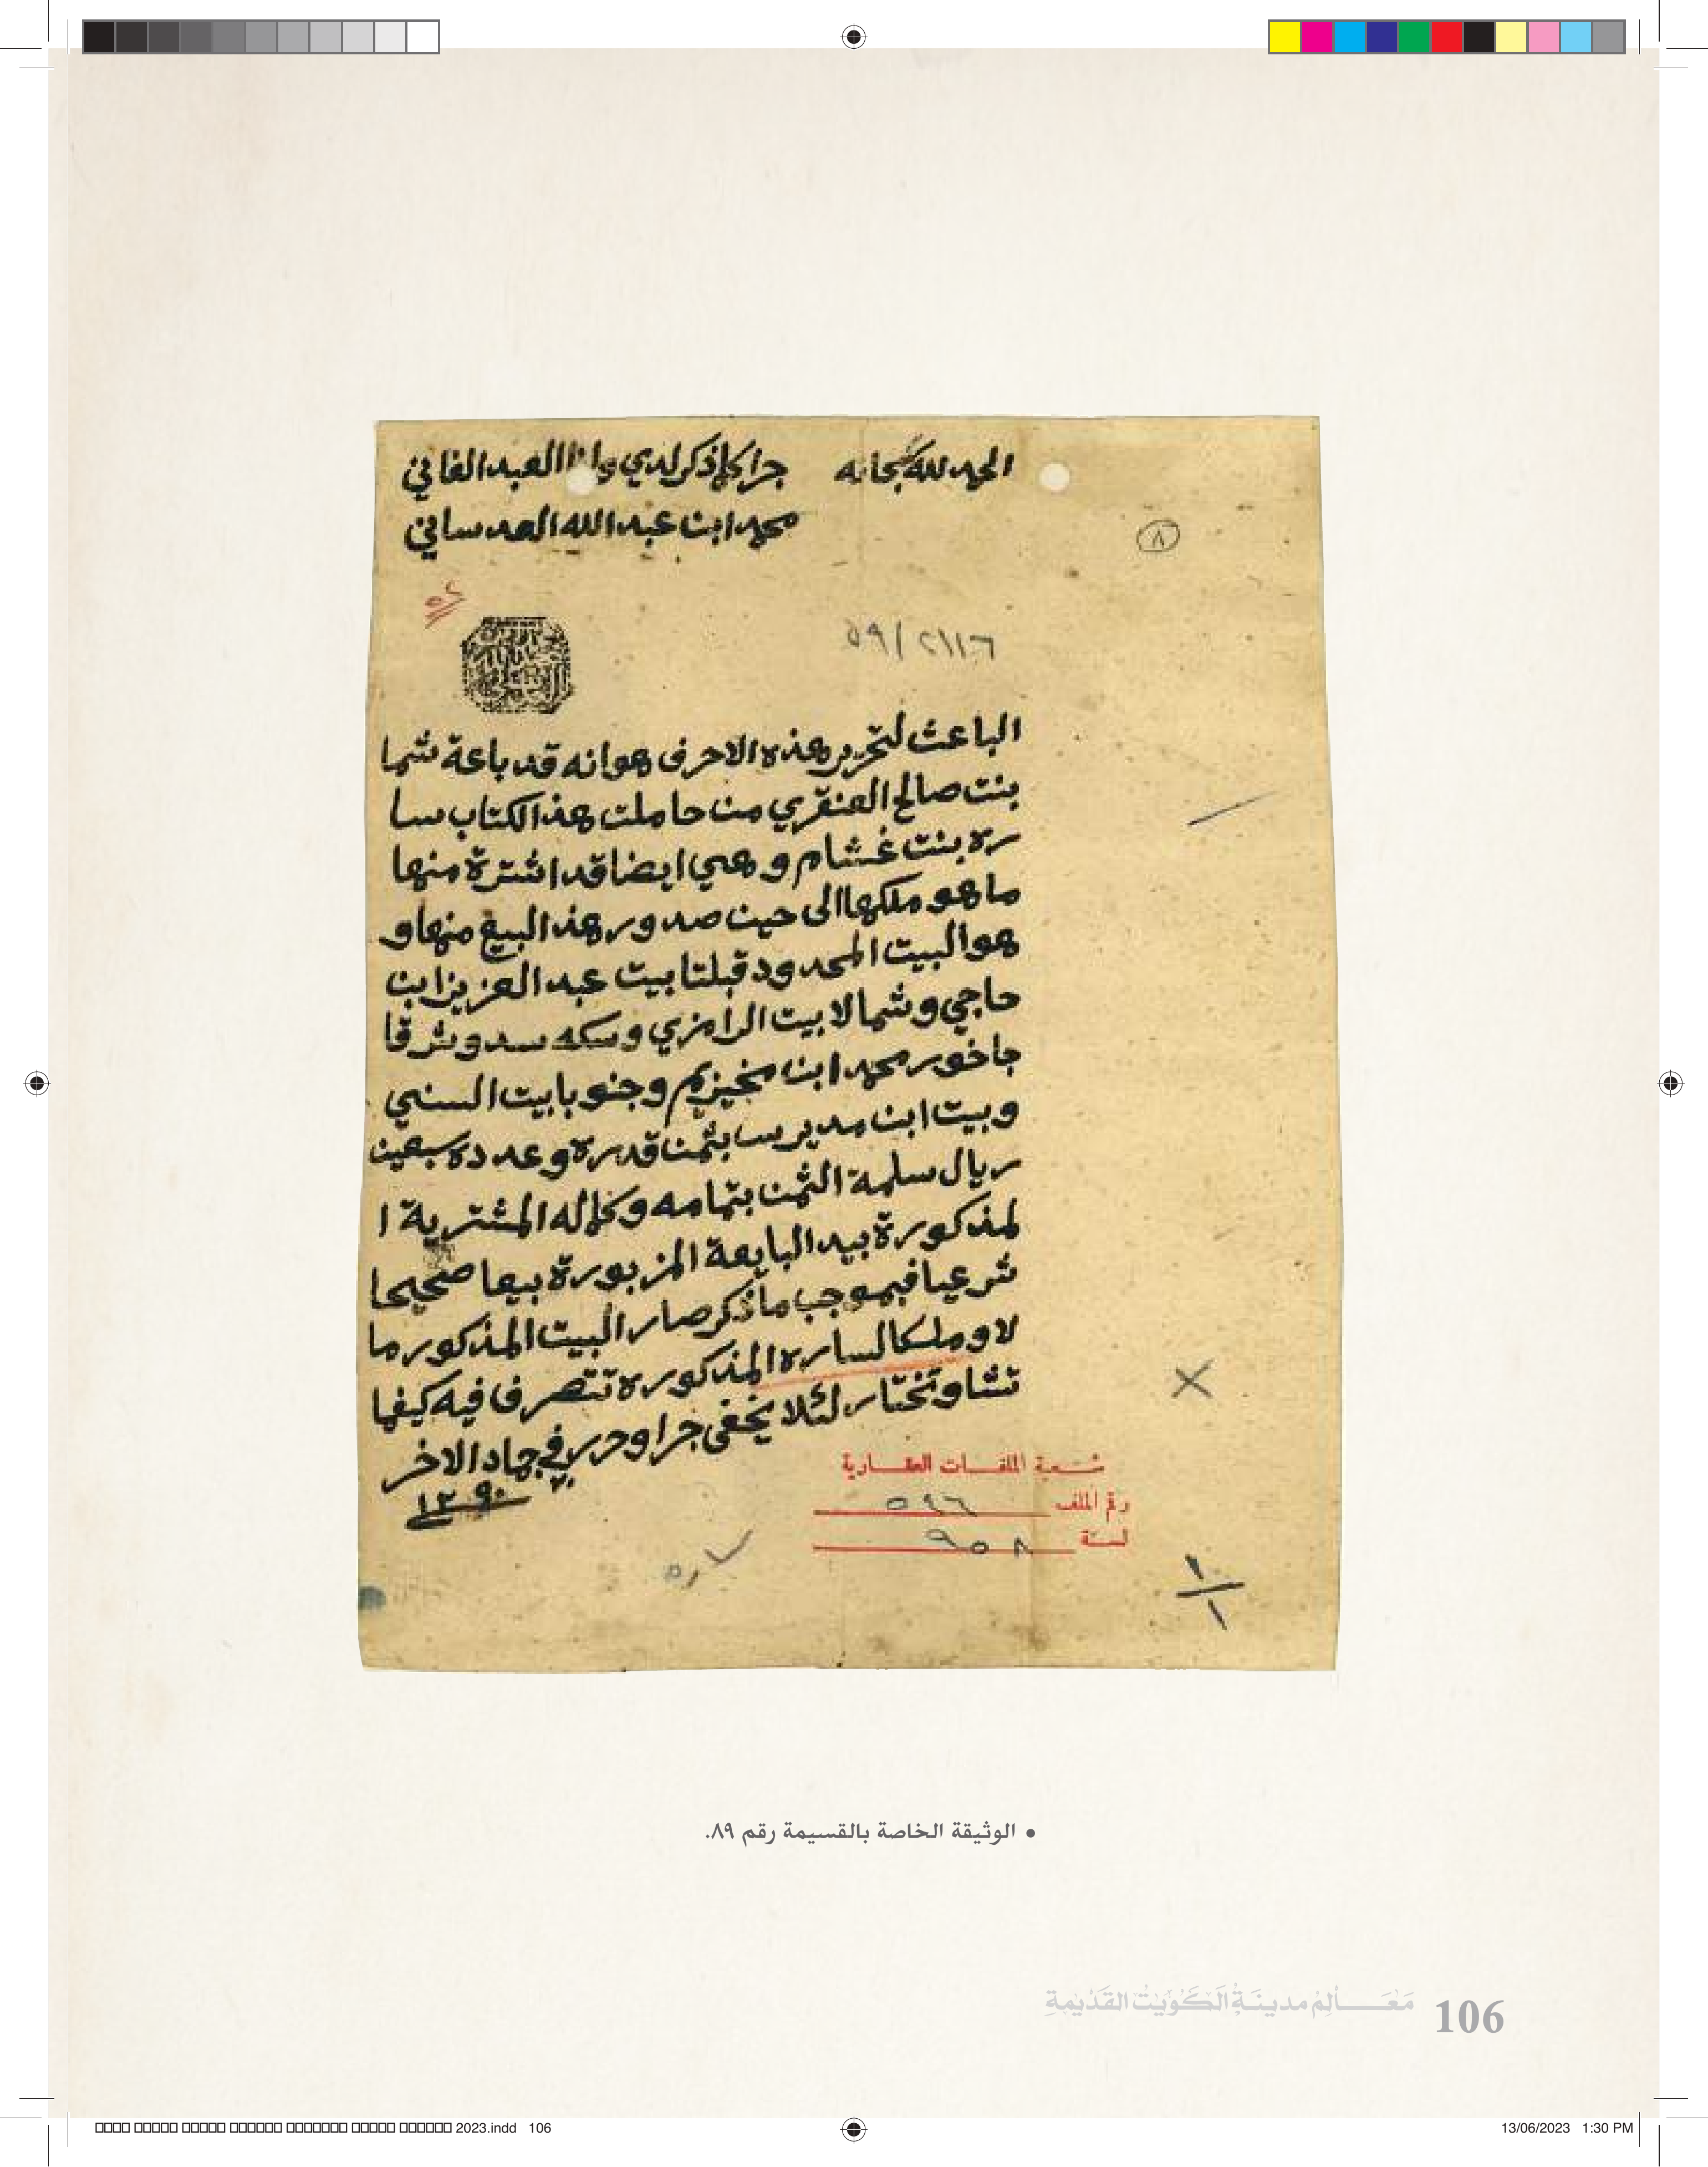 الحمد لله سبحانه
جرا كلما ذكر لدي وانا العبد الفاني
محمد ابن عبد الله العدساني
٨
٥٢
٥٩/٢١١٦
الباعث لتحرير هذه الاحرف هو انه قد باعة شما
بنت صالح العنقري من حاملت هذ الكتاب سا
ره بنت غشام وهي ايضا قد اشترة منها
ما هو ملكها الى حين صدور هذ البيع منها و
هو البيت المحدود قبلتا بيت عبد العزيز ابن
حاجي وشمالا بيت الرامزي وسكه سد وشرقا
جاخور محمد ابن مخيزيم وجنوبا بيت السني
وبيت ابن مديرسا بثمن قدره وعدده سبعين
ريال سلمة الثمن بتمامه وكماله المشترية ا
لمذكورة بيد البايعة المزبورة بيعا صحيحا
شرعيا فبموجب ما ذكر صار البيت المذكور ما
لا وملكا لساره المذكوره تتصرف فيه كيفما
تشا وتختار لئلا يخفى جرا وحرر في جماد الاخر
١٢٩٠
شعبة الملفات العقارية
رقم الملف ٥٩٦
لسنة ٩٥٨
١
١
• الوثيقة الخاصة بالقسيمة رقم ٨٩.
106 مَعَـالِمُ مدينَةِ الكُوَيْتِ القَدْيمَةِ
2023.indd 106
13/06/2023 1:30 PM